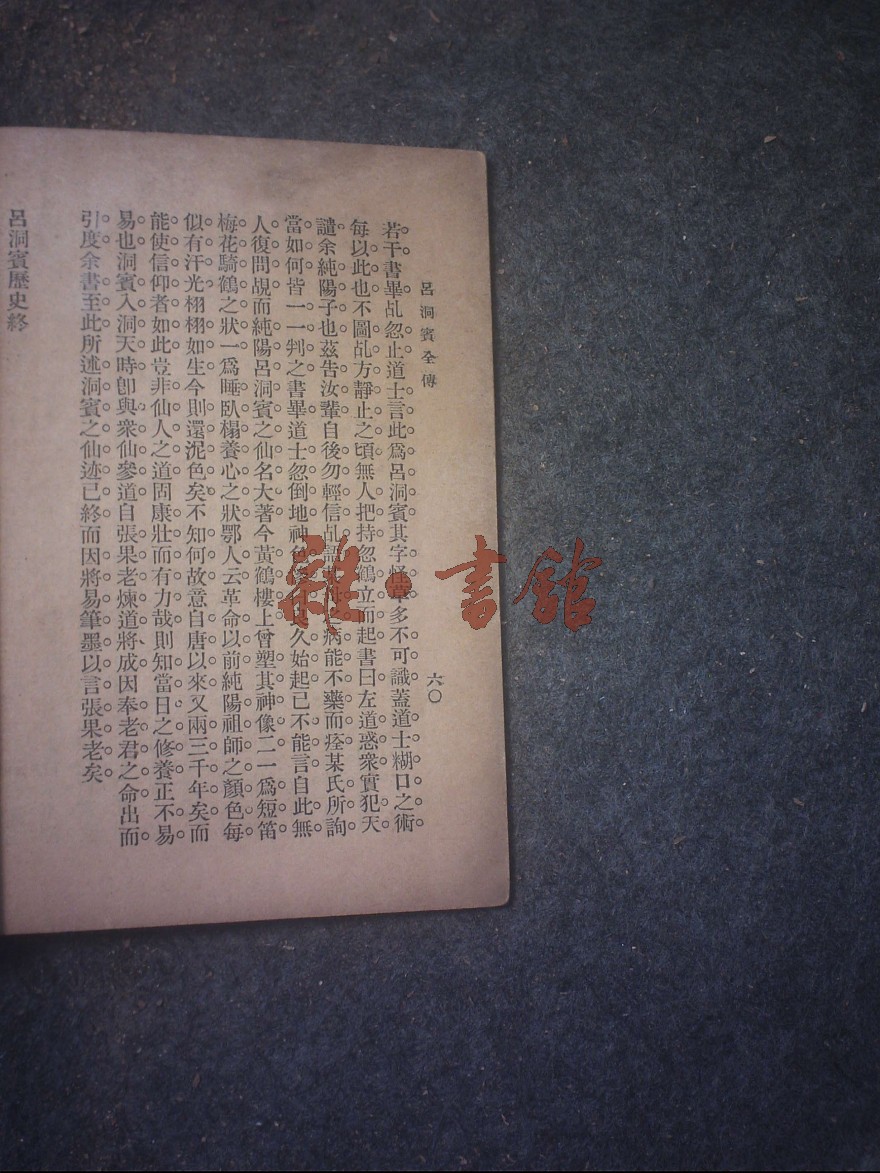 呂洞賓全傳
六〇
若干書畢乩忽止道士言此爲呂洞賓其字怪草多不可識蓋道士糊口之術
每以此也不圖乩方靜止之頃無人把持忽鶴立而起書曰左道惑衆實犯天
譴余純陽子也茲告汝輩自後勿輕信乩語病能不藥而痊某氏所詢
當如何皆一一判之書畢道士忽倒地神色久始起已不能言自此無
人復問覘而純陽呂洞賓之仙名大著今黃鶴樓上曾塑其神像二一爲短笛
梅花騎鶴之狀一爲睡臥榻養心之狀鄂人云革命以前純陽祖師之顏色每
似有汗光栩栩如生今則還泥色矣不知何故意自唐以來又兩三千年矣而
能使信仰者如此豈非仙人之道固康壯而有力哉則知當日之修養正不易
易也洞賓入洞天時卽與衆仙參道自張果老煉道將成因奉老君之命出而
引度余書至此所述洞賓之仙迹已終而因將易筆墨以言張果老矣
呂洞賓歷史終
雜·書館